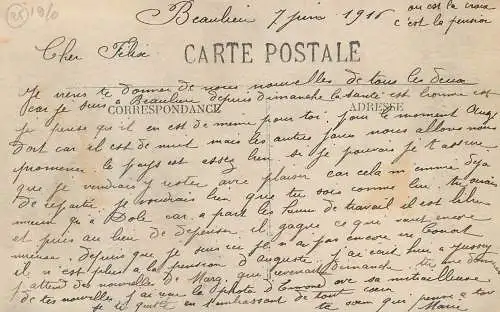 25 19/0
Beaulieu 7 juin 1916 ou est la croix
c'est la pension
Cher Félix
CARTE POSTALE
Je viens te donner de nous nouvelles de tous les deux
car je suis à Beaulieu depuis dimanche la santé est bonne et
CORRESPONDANCE ADRESSE
je pense qu'il en est de même pour toi, pour le moment
dort car il est de nuit mais les autres jours nous allons nous
promener le pays est assez bien si je pouvais je t'assure
que je voudrais y rester avec plaisir car cela m'ennuie déjà
de repartir je voudrais bien que tu sois comme lui tu serais
mieux qu'à Dole car a part les heures de travail il est libre
et puis au lieu de dépenser il gagne ce qui vaut encore
mieux, depuis que je suis ici je n'ai pas encore vu
il n'est plus à la pension d'auguste j'ai écrit hier a
j'attend des nouvelles de Marg qui revenait dimanche tu me donn
de tes nouvelles j'ai reçu la photo d' ove sa mitrailleuse
je te quitte en t'embrassant de tout cœur
ta sœur qui pense a toi
Marie